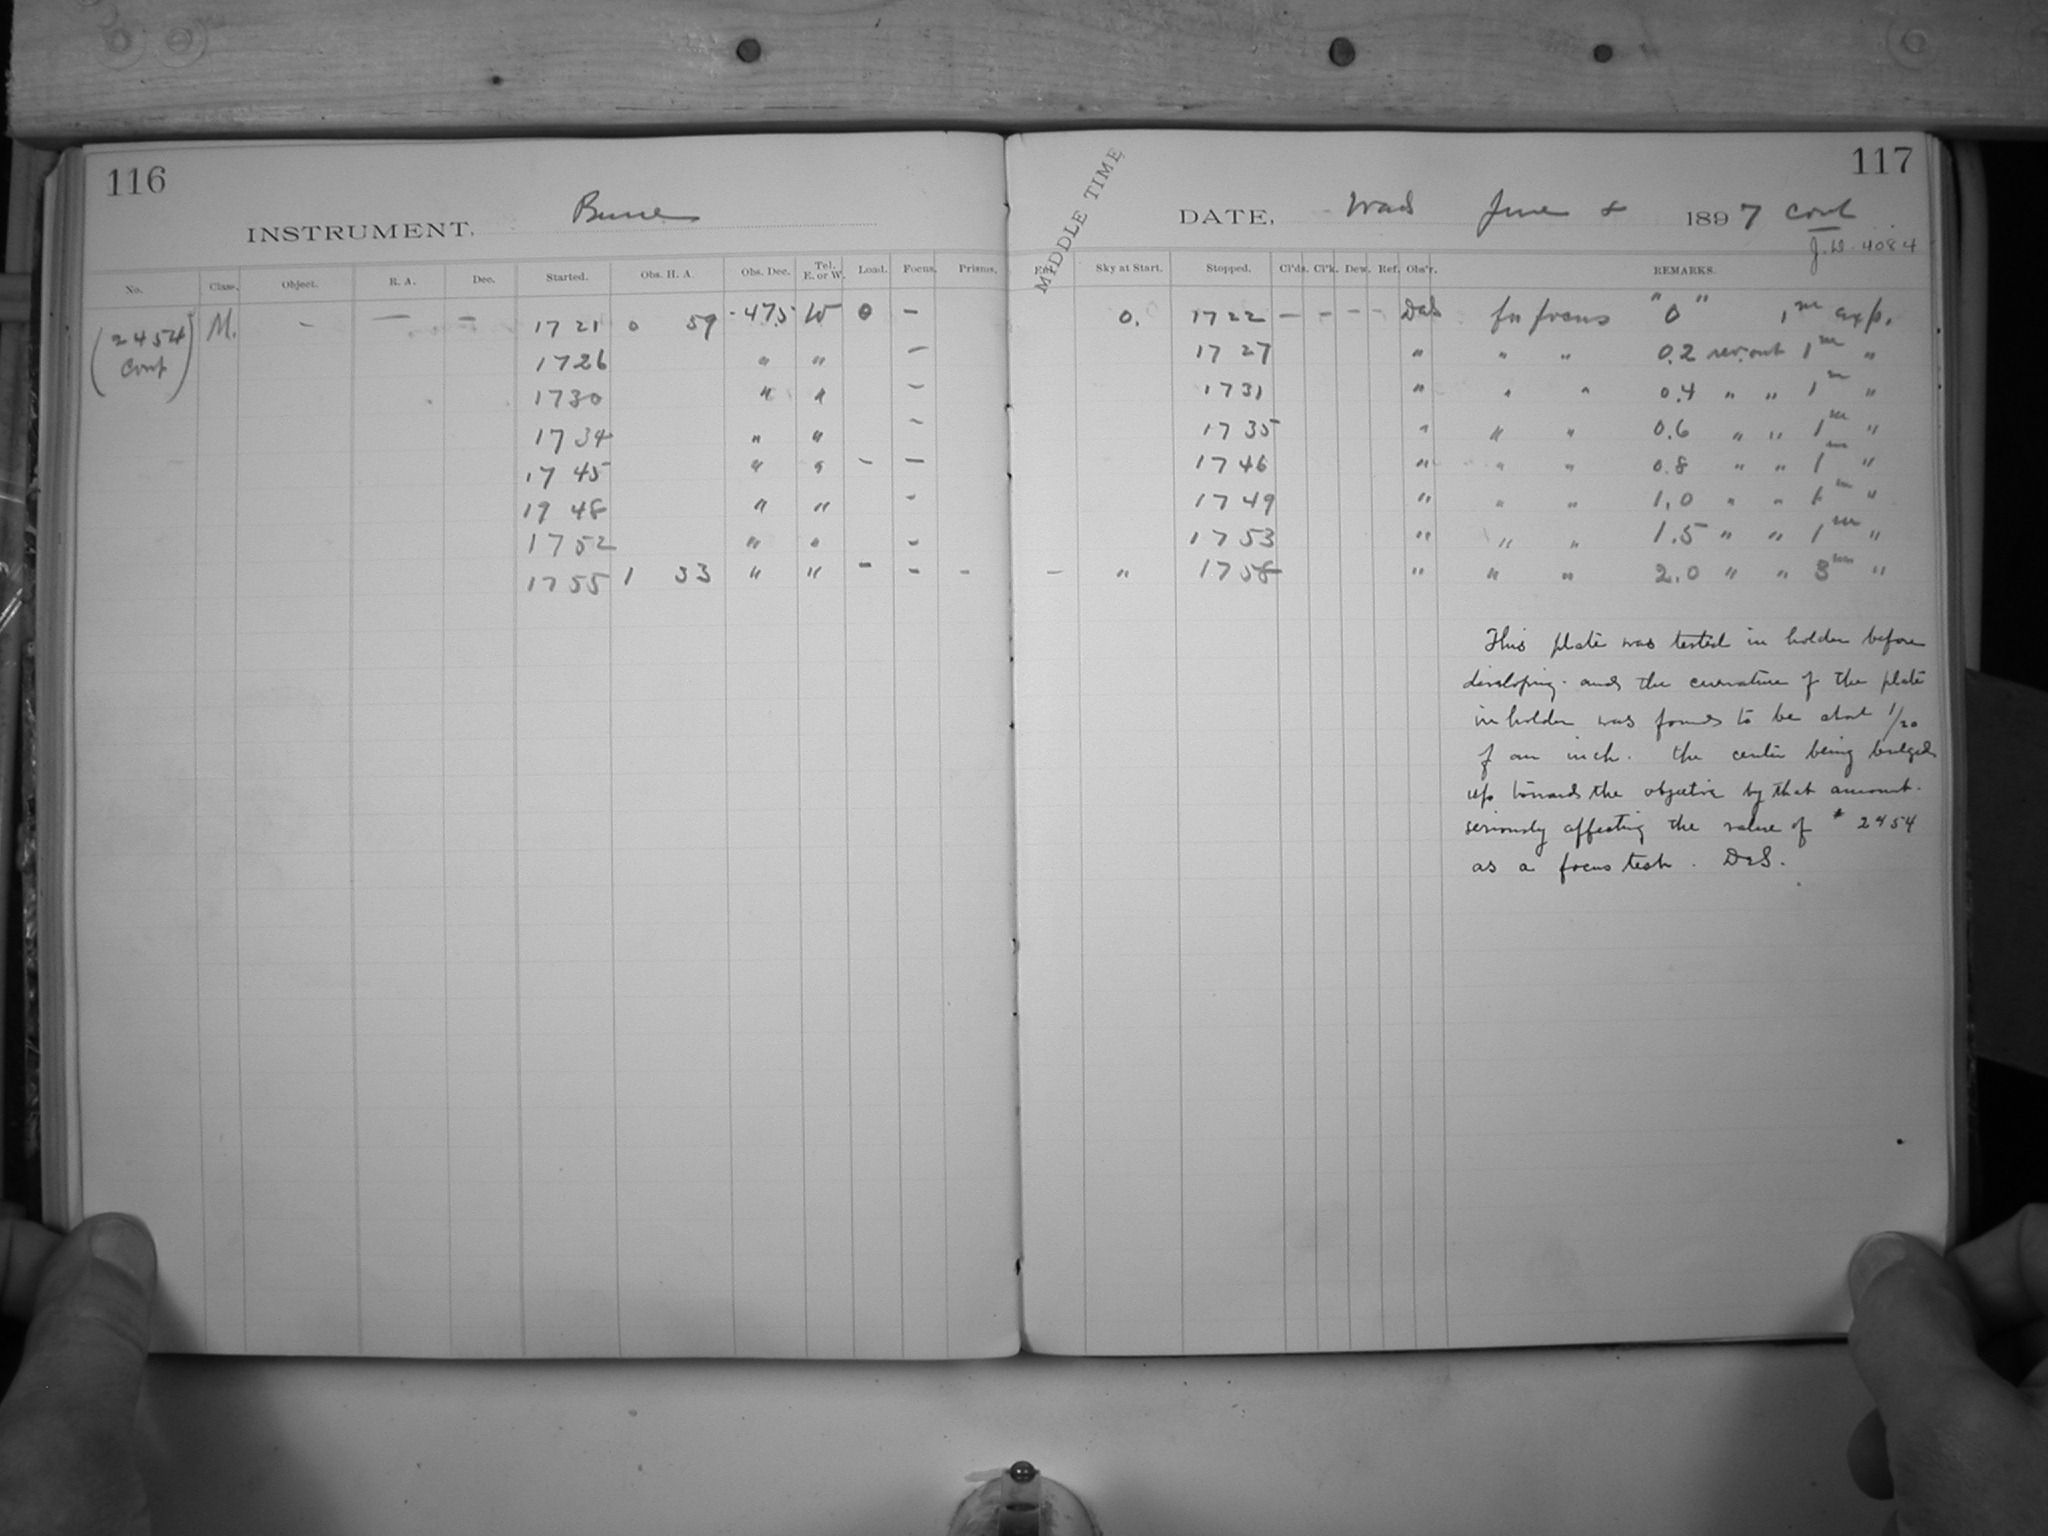 116
INSTRUMENT, Bruce
MIDDLE TIME
117
DATE, Wed June 1897 cont
J.D. 4084
No. Class. Object. R. A. Dec. Started. Obs. H. A. Obs. Dec. Tel. E. or W. Load. Focus. Prisms. Sky at Start. Stopped. Cl'ds. Cl'k. Dew. Ref. Obs'r. REMARKS.
(2454 cont) M. - - - 17 21 0 59 -47.5 W 0 - 0. 17 22 - - - - DeS for focus "0" 1m exp.
17 26 " " - 17 27 " " " 0.2 rev. out 1m "
17 30 " " - 17 31 " " " 0.4 " " 1m "
17 34 " " - 17 35 " " " 0.6 " " 1m "
17 45 " " - - 17 46 " " " 0.8 " " 1m "
17 48 " " - 17 49 " " " 1.0 " " 1m "
17 52 " " - 17 53 " " " 1.5 " " 1m "
17 55 1 33 " " - - - - " 17 58 " " " 2.0 " " 3m "
This plate was tested in holder before
developing and the curvature of the plate
in holder was found to be about 1/20
of an inch. the center being bulged
up towards the objective by that amount.
seriously affecting the value of # 2454
as a focus test. DeS.